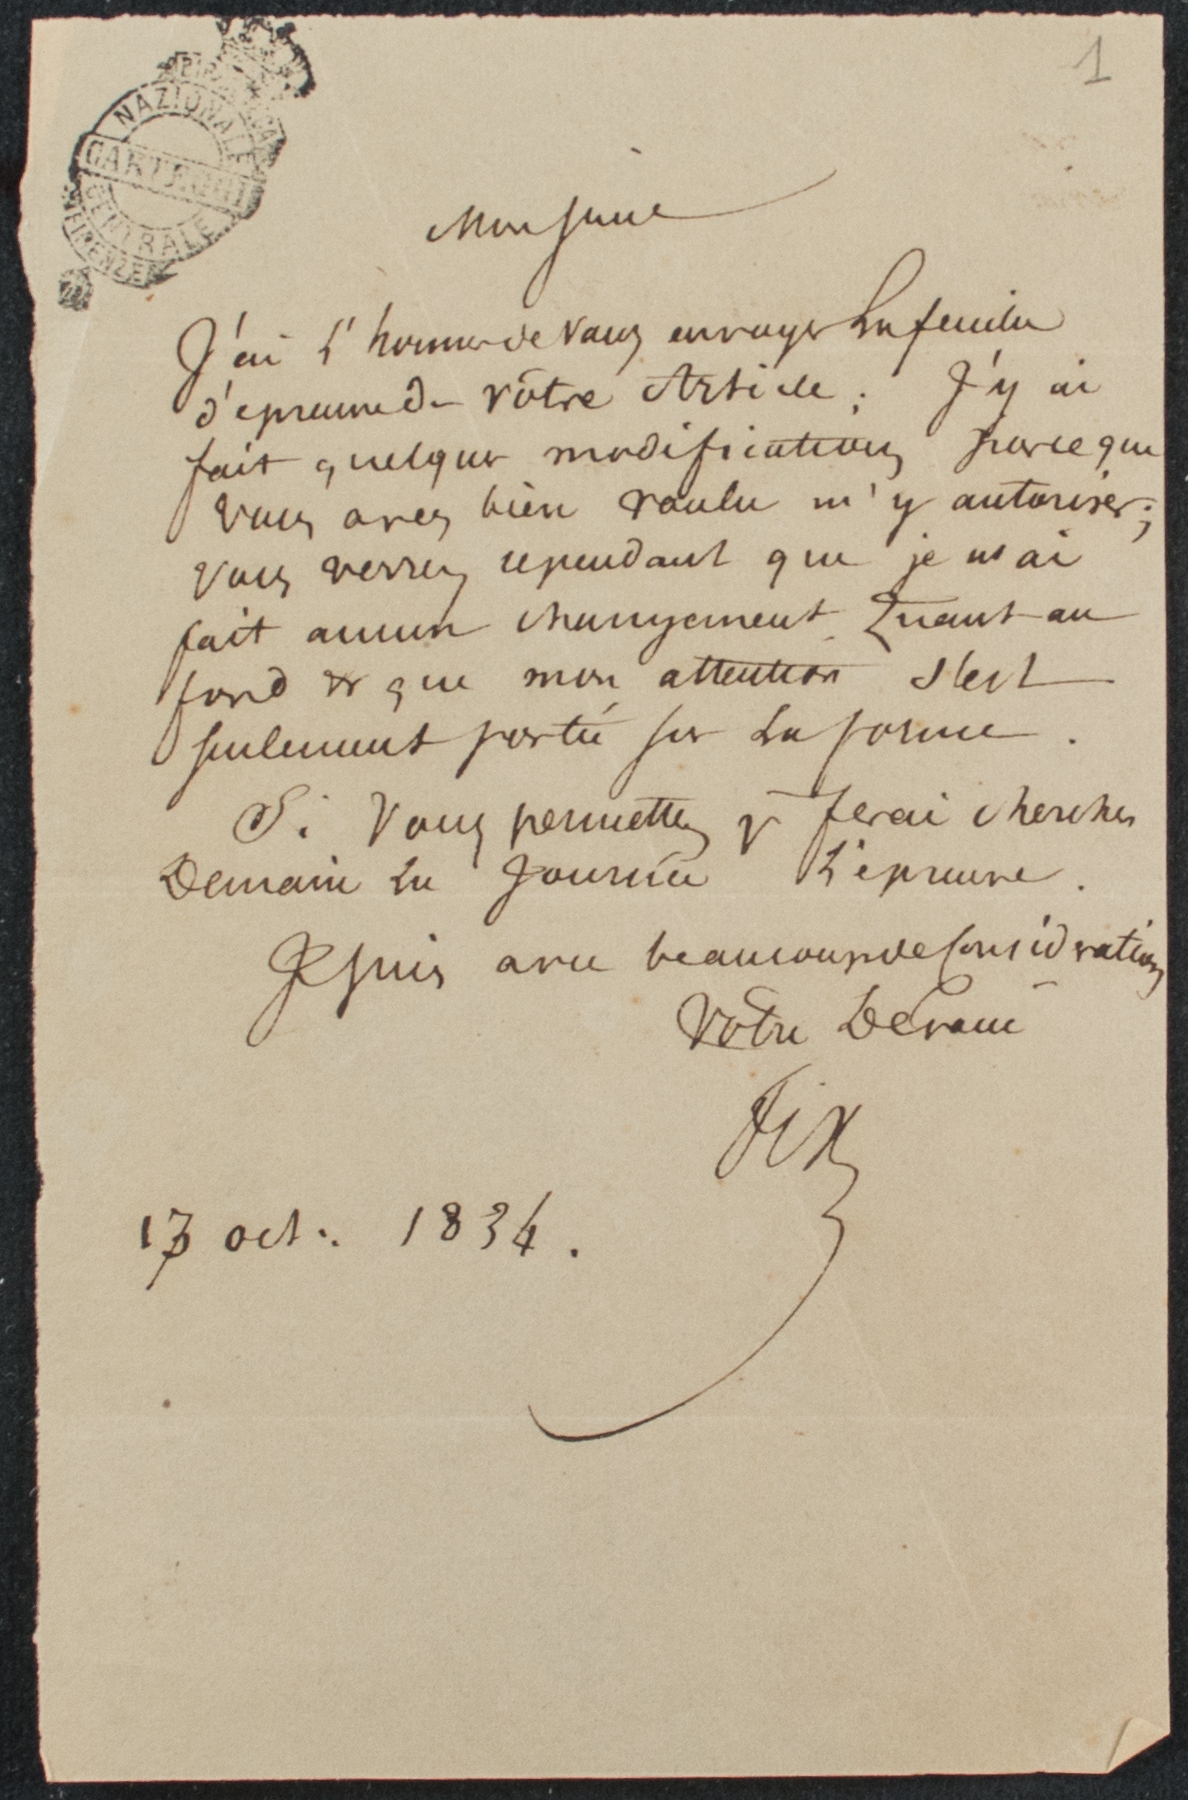 1
BIBLIOTECA
NAZIONALE
CARTEGGI
CENTRALE
FIRENZE
Monsieur
J'ai l'honneur de vous envoyer la feuille
d'epreuve de votre Article ; J'y ai
fait quelques modifications parceque
vous avez bien voulu m'y autoriser ;
vous verrez cependant que je n'ai
fait aucun changement Quant au
fond & que mon attention s'est
seulement portée sur la forme .
Si vous permettez je ferai chercher
Demain la Journée l'epreuve .
Je suis avec beaucoup de Consideration
Votre Devoué
Fix
17 oct. 1834 .